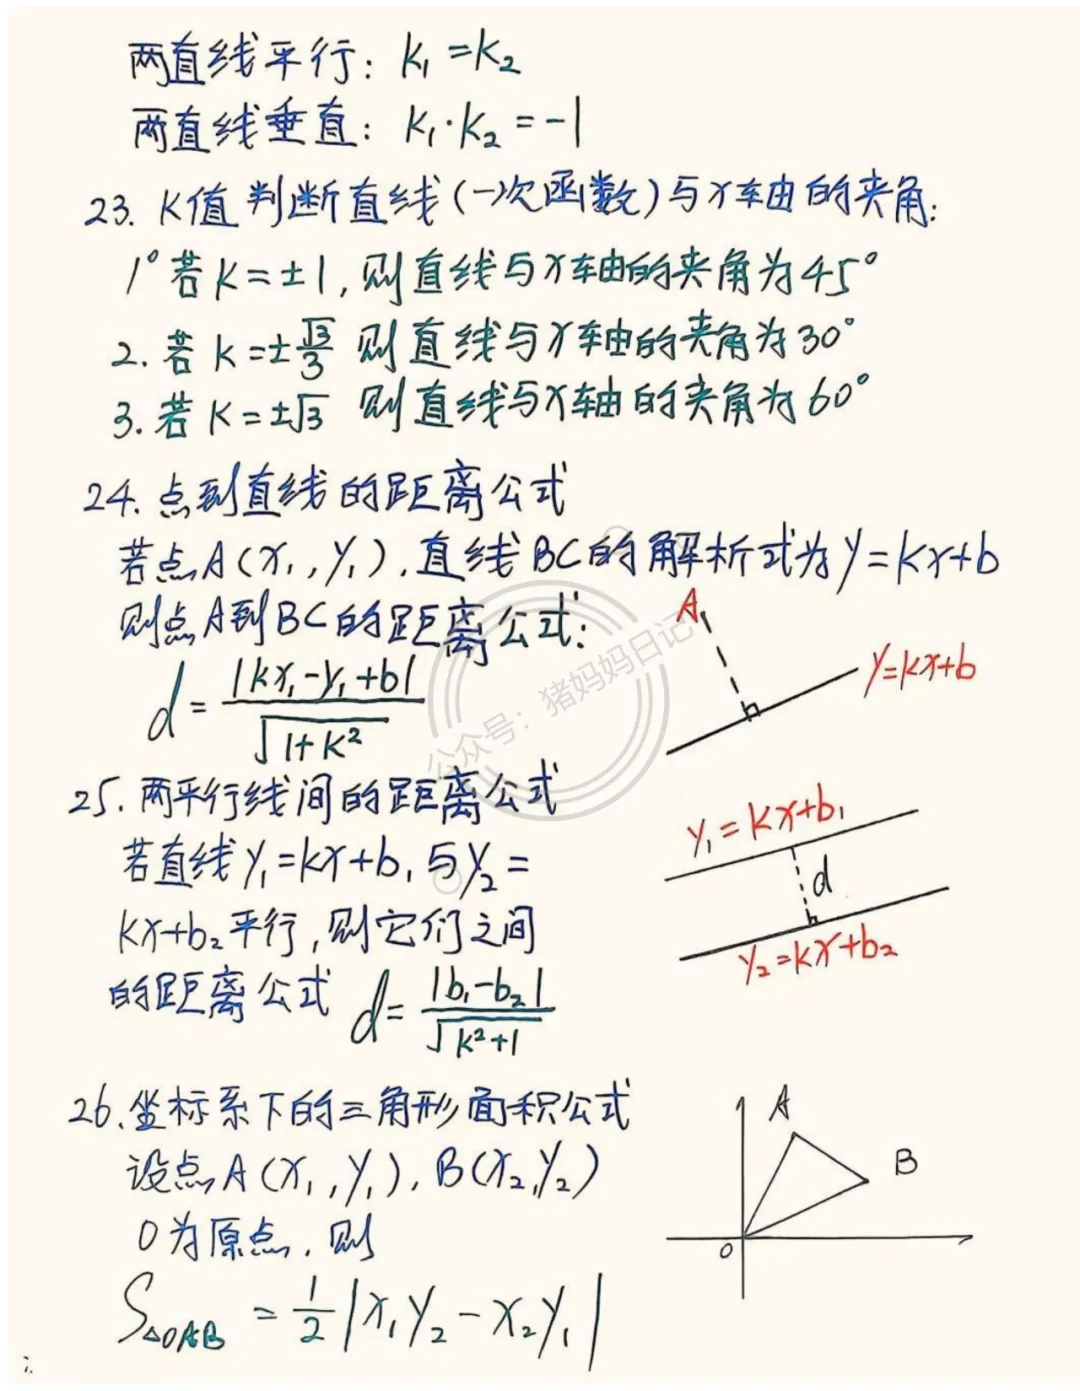 两直线平行: k₁=k₂
两直线垂直: k₁·k₂=-1
23. K值判断直线(一次函数)与x轴的夹角:
1°若K=±1,则直线与x轴的夹角为45°
2.若K=±√3/3 则直线与x轴的夹角为30°
3.若K=±√3 则直线与x轴的夹角为60°
24.点到直线的距离公式
若点A(x₁,y₁),直线BC的解析式为y=kx+b
则点A到BC的距离公式:
d=|kx₁-y₁+b|/√(1+k²)
A
y=kx+b
25.两平行线间的距离公式
若直线y₁=kx+b₁与y₂=
kx+b₂平行,则它们之间
的距离公式 d=|b₁-b₂|/√(k²+1)
y₁=kx+b₁
d
y₂=kx+b₂
26.坐标系下的三角形面积公式
设点A(x₁,y₁),B(x₂,y₂)
O为原点,则
S△OAB=1/2|x₁y₂-x₂y₁|
A
B
O
公众号:猪妈妈日记